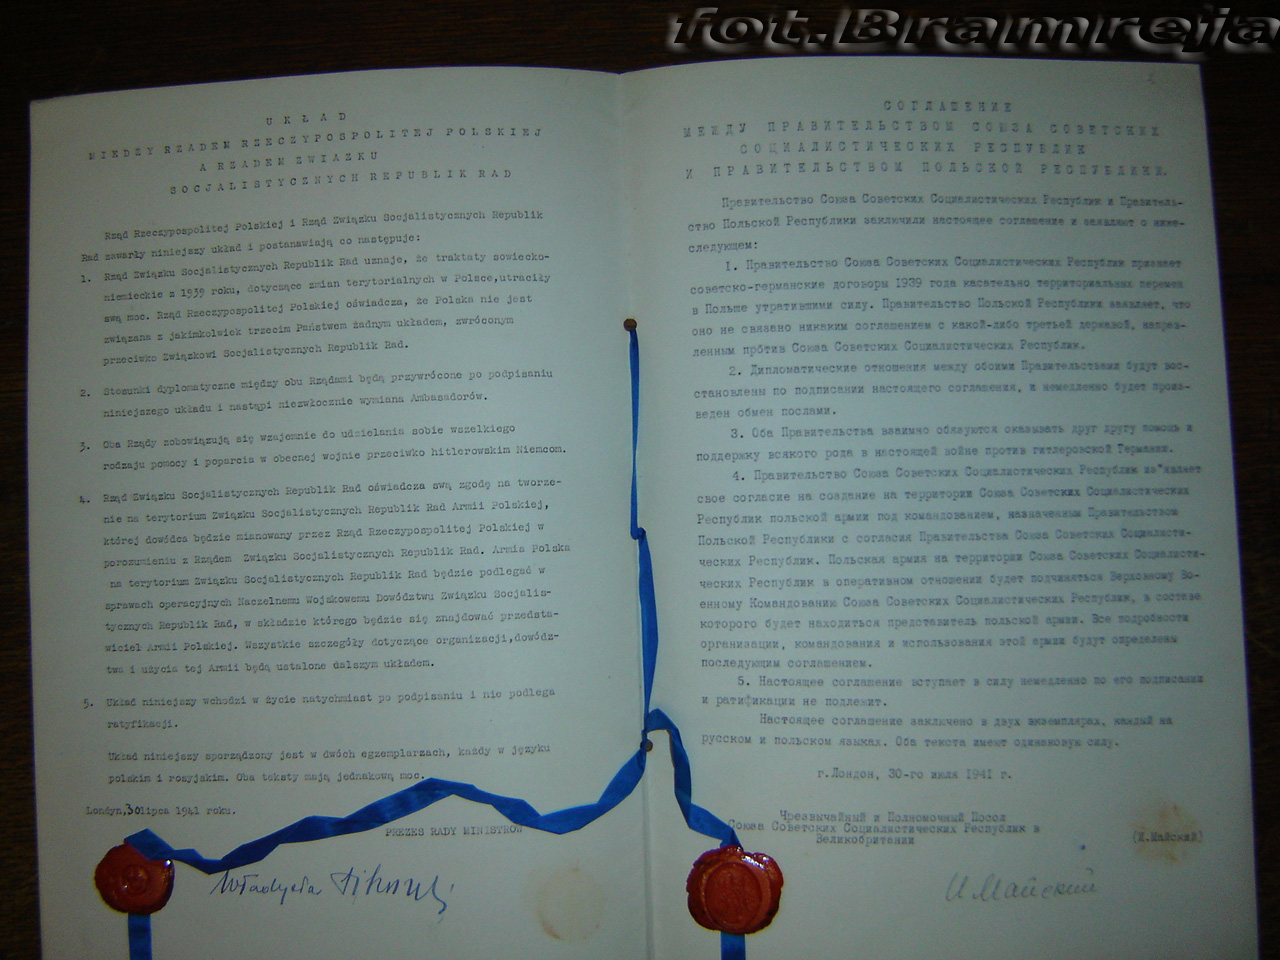 fot.Bramreja
U K Ł A D
MIĘDZY RZĄDEM RZECZYPOSPOLITEJ POLSKIEJ
A RZĄDEM ZWIĄZKU
SOCJALISTYCZNYCH REPUBLIK RAD
Rząd Rzeczypospolitej Polskiej i Rząd Związku Socjalistycznych Republik
Rad zawarły niniejszy układ i postanawiają co następuje:
1. Rząd Związku Socjalistycznych Republik Rad uznaje, że traktaty sowiecko-
niemieckie z 1939 roku, dotyczące zmian terytorialnych w Polsce,utraciły
swą moc. Rząd Rzeczypospolitej Polskiej oświadcza, że Polska nie jest
związana z jakimkolwiek trzecim Państwem żadnym układem, zwróconym
przeciwko Związkowi Socjalistycznych Republik Rad.
2. Stosunki dyplomatyczne między obu Rządami będą przywrócone po podpisaniu
niniejszego układu i nastąpi niezwłocznie wymiana Ambasadorów.
3. Oba Rządy zobowiązują się wzajemnie do udzielania sobie wszelkiego
rodzaju pomocy i poparcia w obecnej wojnie przeciwko hitlerowskim Niemcom.
4. Rząd Związku Socjalistycznych Republik Rad oświadcza swą zgodę na tworze-
nie na terytorium Związku Socjalistycznych Republik Rad Armii Polskiej,
której dowódca będzie mianowany przez Rząd Rzeczypospolitej Polskiej w
porozumieniu z Rządem Związku Socjalistycznych Republik Rad. Armia Polska
na terytorium Związku Socjalistycznych Republik Rad będzie podlegać w
sprawach operacyjnych Naczelnemu Wojskowemu Dowództwu Związku Socjalis-
tycznych Republik Rad, w składzie którego będzie się znajdować przedsta-
wiciel Armii Polskiej. Wszystkie szczegóły dotyczące organizacji,dowódz-
twa i użycia tej Armii będą ustalone dalszym układem.
5. Układ niniejszy wchodzi w życie natychmiast po podpisaniu i nie podlega
ratyfikacji.
Układ niniejszy sporządzony jest w dwóch egzemplarzach, każdy w języku
polskim i rosyjskim. Oba teksty mają jednakową moc.
Londyn,30lipca 1941 roku.
PREZES RADY MINISTRÓW
Władysław Sikorski
СОГЛАШЕНИЕ
МЕЖДУ ПРАВИТЕЛЬСТВОМ СОЮЗА СОВЕТСКИХ
СОЦИАЛИСТИЧЕСКИХ РЕСПУБЛИК
И ПРАВИТЕЛЬСТВОМ ПОЛЬСКОЙ РЕСПУБЛИКИ.
Правительство Союза Советских Социалистических Республик и Правитель-
ство Польской Республики заключили настоящее соглашение и заявляют о ниже-
следующем:
1. Правительство Союза Советских Социалистических Республик признает
советско-германские договоры 1939 года касательно территориальных перемен
в Польше утратившими силу. Правительство Польской Республики заявляет, что
оно не связано никаким соглашением с какой-либо третьей державой, направ-
ленным против Союза Советских Социалистических Республик.
2. Дипломатические отношения между обоими Правительствами будут вос-
становлены по подписании настоящего соглашения, и немедленно будет произ-
веден обмен послами.
3. Оба Правительства взаимно обязуются оказывать друг другу помощь и
поддержку всякого рода в настоящей войне против гитлеровской Германии.
4. Правительство Союза Советских Социалистических Республик изъявляет
свое согласие на создание на территории Союза Советских Социалистических
Республик польской армии под командованием, назначенным Правительством
Польской Республики с согласия Правительства Союза Советских Социалисти-
ческих Республик. Польская армия на территории Союза Советских Социалисти-
ческих Республик в оперативном отношении будет подчиняться Верховному Во-
енному Командованию Союза Советских Социалистических Республик, в составе
которого будет находиться представитель польской армии. Все подробности
организации, командования и использования этой армии будут определены
последующим соглашением.
5. Настоящее соглашение вступает в силу немедленно по его подписании
и ратификации не подлежит.
Настоящее соглашение заключено в двух экземплярах, каждый на
русском и польском языках. Оба текста имеют одинаковую силу.
г.Лондон, 30-го июля 1941 г.
Чрезвычайный и Полномочный Посол
Союза Советских Социалистических Республик в
Великобритании
(И.Майский)
И Майский